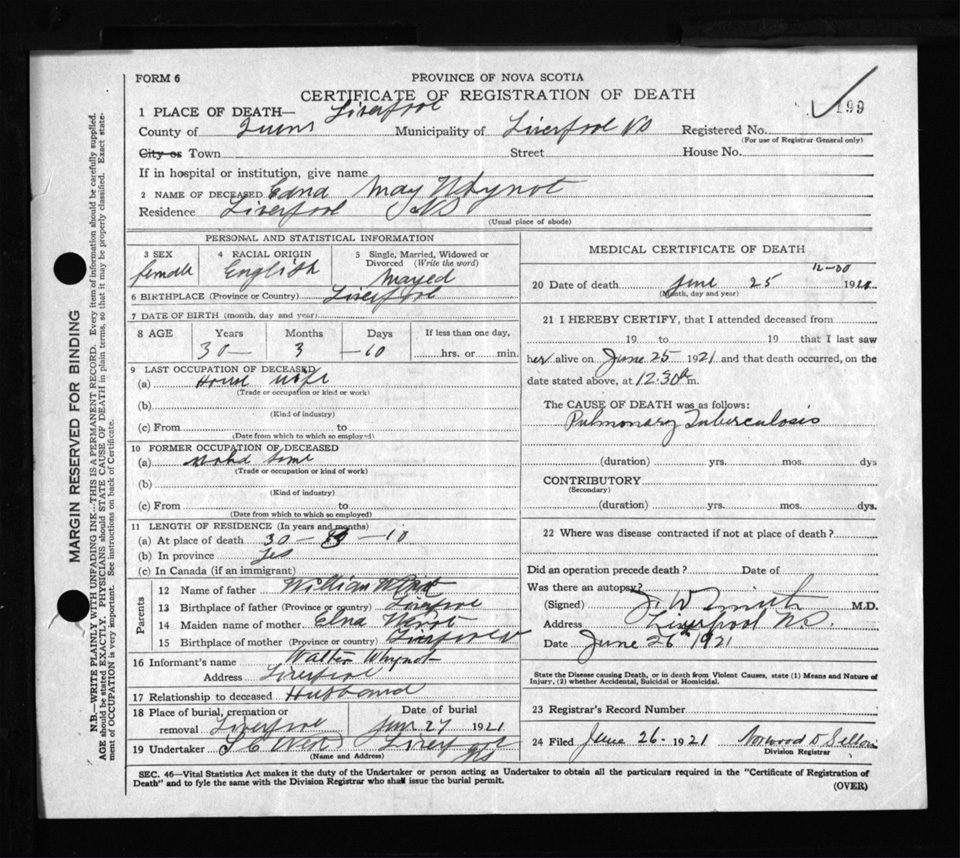 FORM 6
PROVINCE OF NOVA SCOTIA
CERTIFICATE OF REGISTRATION OF DEATH
199
1 PLACE OF DEATH— Liverpool
County of Municipality of Liverpool NS Registered No.
(For use of Registrar General only)
City or Town Street House No.
If in hospital or institution, give name
2 NAME OF DECEASED Edna May Whynot
Residence Liverpool NS
(Usual place of abode)
PERSONAL AND STATISTICAL INFORMATION
3 SEX female
4 RACIAL ORIGIN English
5 Single, Married, Widowed or Divorced (Write the word)
6 BIRTHPLACE (Province or Country) Liverpool
7 DATE OF BIRTH (month, day and year)
8 AGE Years Months Days If less than one day,
30— 3 —10 hrs. or min.
9 LAST OCCUPATION OF DECEASED
(a) House wife
(Trade or occupation or kind or work)
(b)
(Kind of industry)
(c) From to
(Date from which to which so employed)
10 FORMER OCCUPATION OF DECEASED
(a)
(Trade or occupation or kind of work)
(b)
(Kind of industry)
(c) From to
(Date from which to which so employed)
11 LENGTH OF RESIDENCE (In years and months)
(a) At place of death 30 — —10
(b) In province Yes
(c) In Canada (if an immigrant)
Parents
12 Name of father William
13 Birthplace of father (Province or Country) Liverpool
14 Maiden name of mother
15 Birthplace of mother (Province or country)
16 Informant's name Walter Whynot
Address Liverpool
17 Relationship to deceased Husband
18 Place of burial, cremation or removal Liverpool
Date of burial 27 1921
19 Undertaker
(Name and Address)
MEDICAL CERTIFICATE OF DEATH
12-30
20 Date of death June 25 192
(Month, day and year)
21 I HEREBY CERTIFY, that I attended deceased from
19 to 19 that I last saw
her alive on June 25 1921 and that death occurred, on the
date stated above, at 12.30 m.
The CAUSE OF DEATH was as follows:
Pulmonary Tuberculosis
(duration) yrs. mos. dys
CONTRIBUTORY
(Secondary)
(duration) yrs. mos. dys.
22 Where was disease contracted if not at place of death?
Did an operation precede death? Date of
Was there an autopsy?
(Signed) J W Smith M.D.
Address Liverpool N.S.
Date June 26th 1921
State the Disease causing Death, or in death from Violent Causes, state (1) Means and Nature of
Injury, (2) whether Accidental, Suicidal or Homicidal.
23 Registrar's Record Number
24 Filed June 26. 1921 Norwood D.
Division Registrar
SEC. 46—Vital Statistics Act makes it the duty of the Undertaker or person acting as Undertaker to obtain all the particulars required in the "Certificate of Registration of
Death" and to fyle the same with the Division Registrar who shall issue the burial permit.
(OVER)
MARGIN RESERVED FOR BINDING
N.B.—WRITE PLAINLY WITH UNFADING INK—THIS IS A PERMANENT RECORD. Every item of information should be carefully supplied.
AGE should be stated EXACTLY. PHYSICIANS should STATE CAUSE OF DEATH in plain terms, so that it may be properly classified. Exact state-
ment of OCCUPATION is very important. See instructions on back of Certificate.